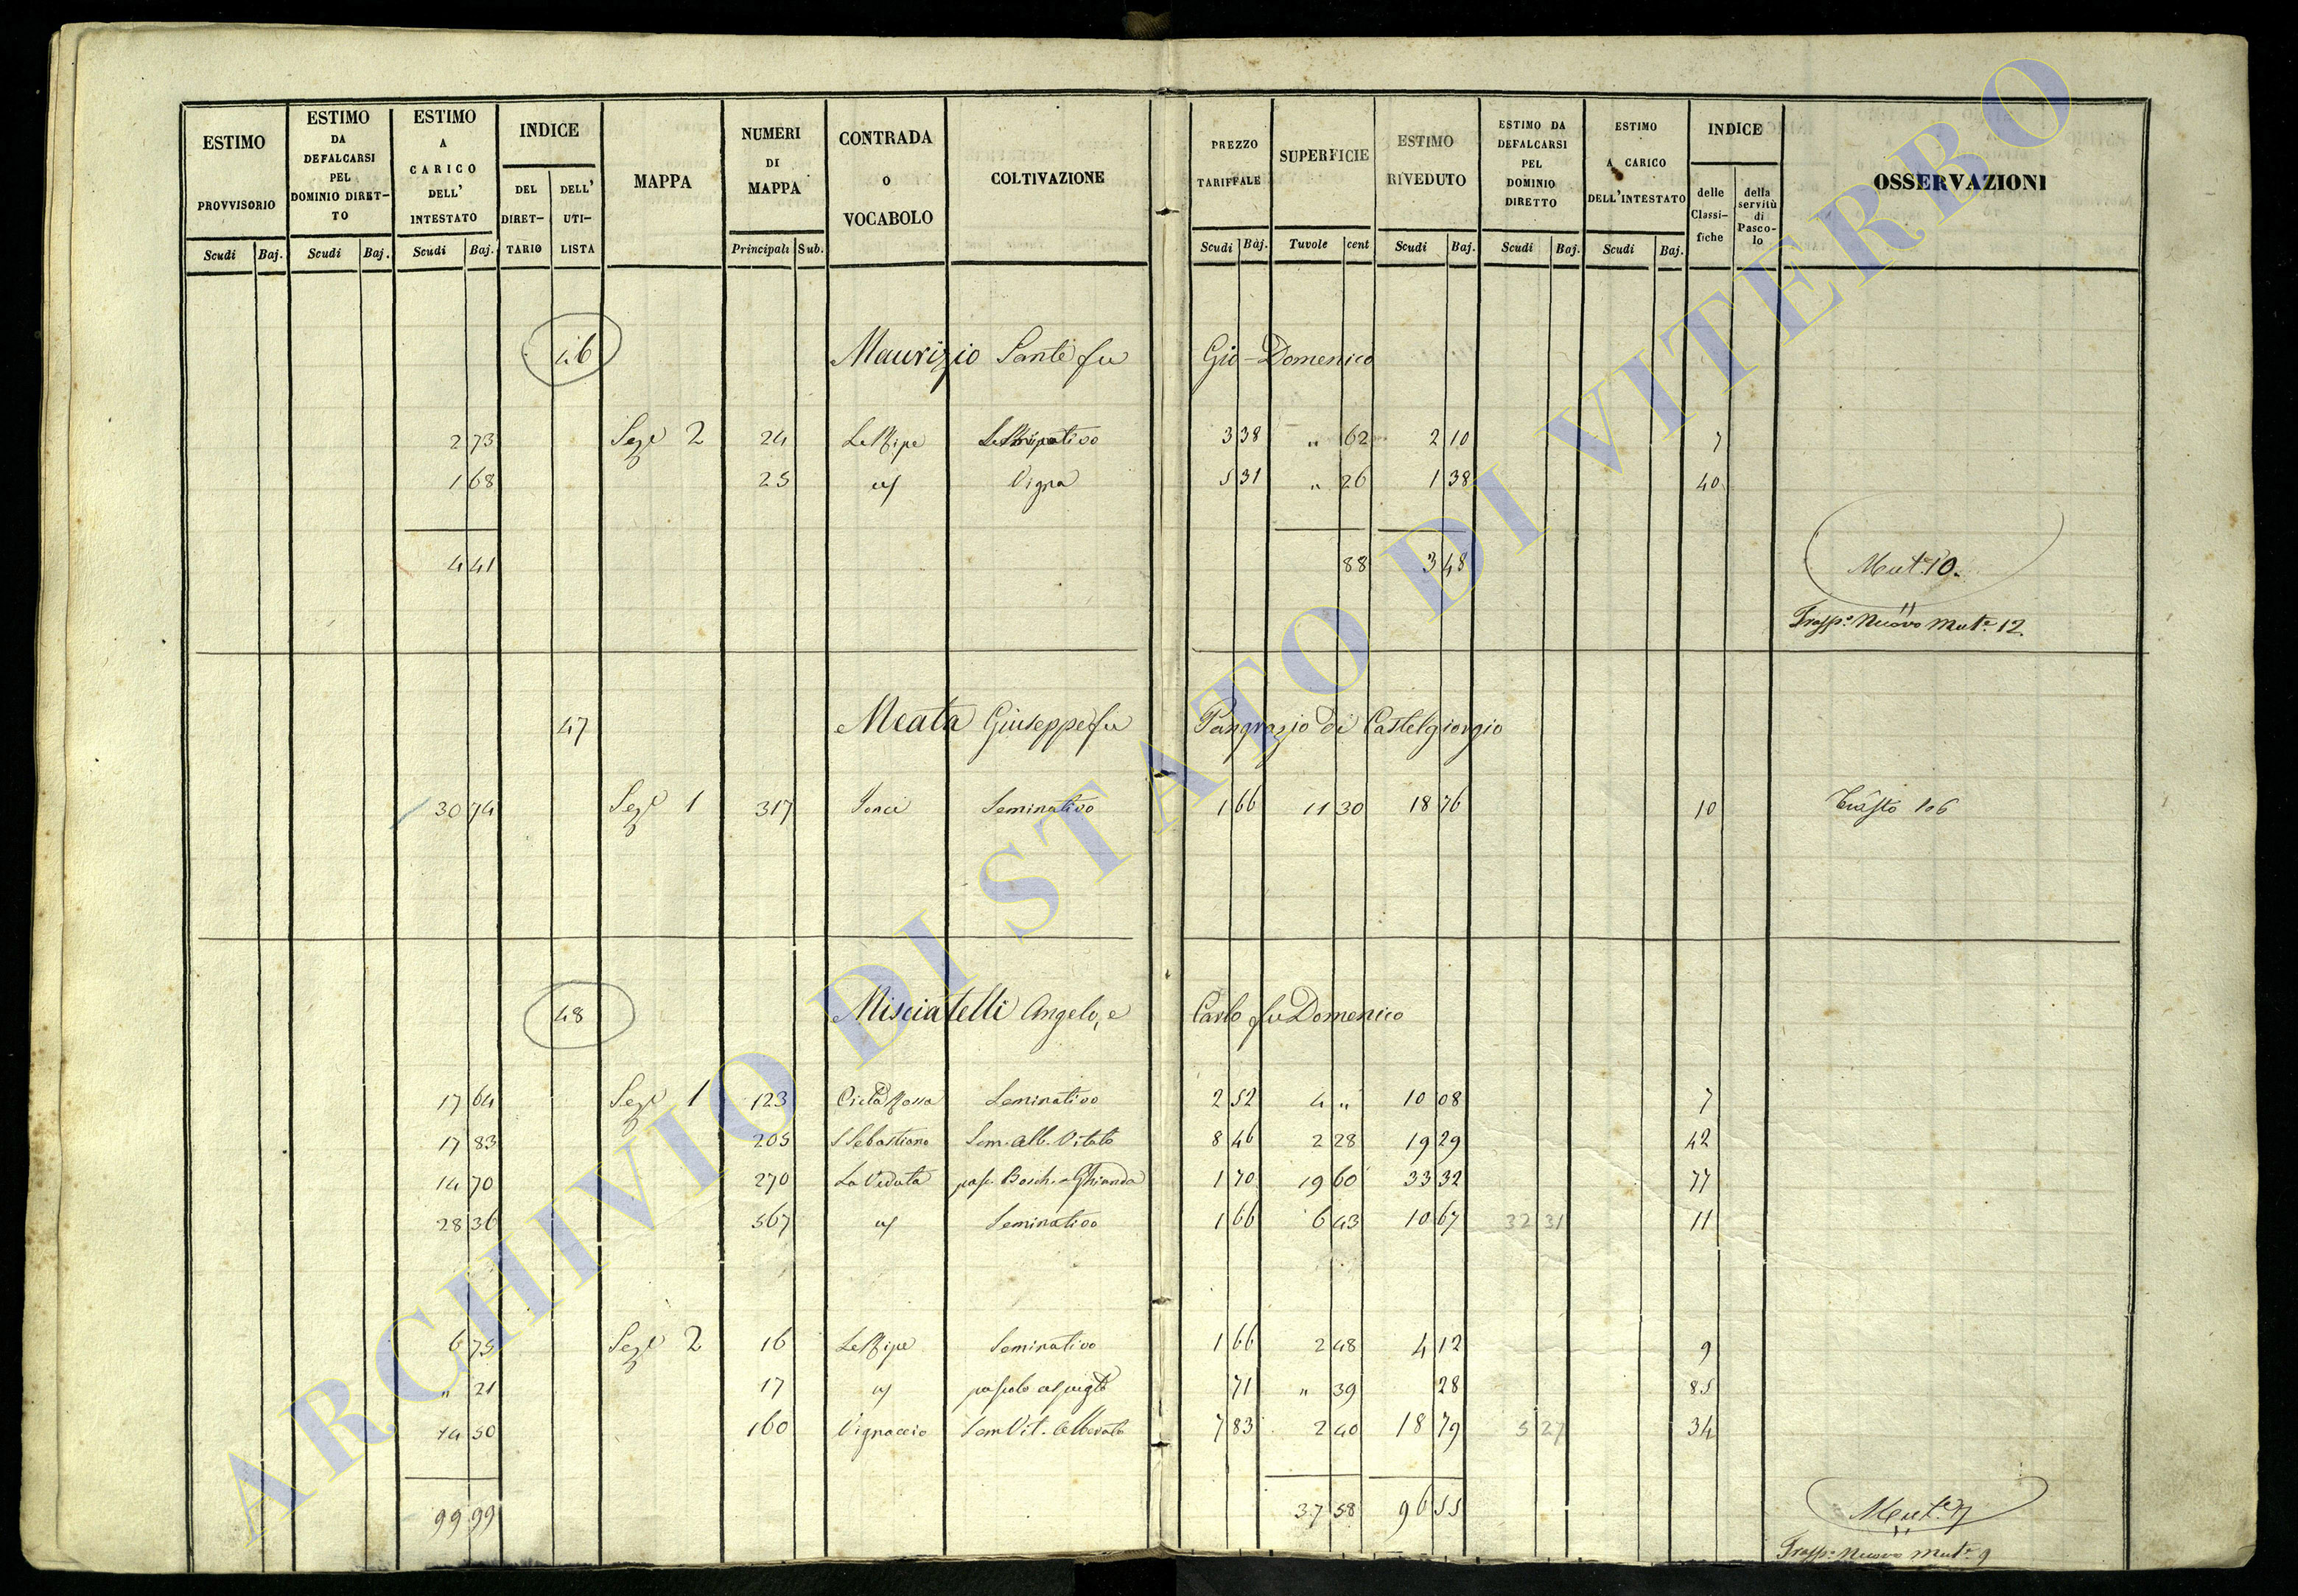 ESTIMO PROVVISORIO
Scudi Baj.
ESTIMO DA DEFALCARSI PEL DOMINIO DIRET-TO
Scudi Baj.
ESTIMO A CARICO DELL' INTESTATO
Scudi Baj.
INDICE
DEL DIRET-TARIO
DELL' UTI-LISTA
MAPPA
NUMERI DI MAPPA
Principali Sub.
CONTRADA O VOCABOLO
COLTIVAZIONE
PREZZO TARIFFALE
Scudi Baj.
SUPERFICIE
Tavole cent
ESTIMO RIVEDUTO
Scudi Baj.
ESTIMO DA DEFALCARSI PEL DOMINIO DIRETTO
Scudi Baj.
ESTIMO A CARICO DELL'INTESTATO
Scudi Baj.
INDICE
delle Classi-fiche
della servitù di Pasco-lo
OSSERVAZIONI
46 Maurizio Sante fu Gio-Domenico
2 73 Seze 2 24 Le Ripe 3 38 " 62 2 10 7
1 68 25 id Vigna 5 31 " 26 1 38 40
4 41 88 3 48
Muta 10.
Trasp. Nuovo Muta 12.
47 Meata Giuseppe fu Pangrazio di Castelgiorgio
30 74 Seze 1 317 Seminativo 1 66 11 30 18 76 10 106
48 Misciatelli Angelo, e Carlo fu Domenico
17 64 Seze 1 123 Seminativo 2 52 4 " 10 08 7
17 83 205 S Sebastiano Sem. Alb. Vitato 8 46 2 28 19 29 42
14 70 270 La Veduta pasc. Bosch. a Ghianda 1 70 19 60 33 32 77
28 36 567 id Seminativo 1 66 6 43 10 67 32 31 11
6 75 Seze 2 16 Le Ripe Seminativo 1 66 2 48 4 12 9
" 21 17 id pascolo 71 " 39 28 85
14 50 160 Vignaccio Sem Vit. Alberato 7 83 2 40 18 79 5 27 34
99 99 37 58 96 55
Trasp. Nuovo Muta 9
ARCHIVIO DI STATO DI VITERBO